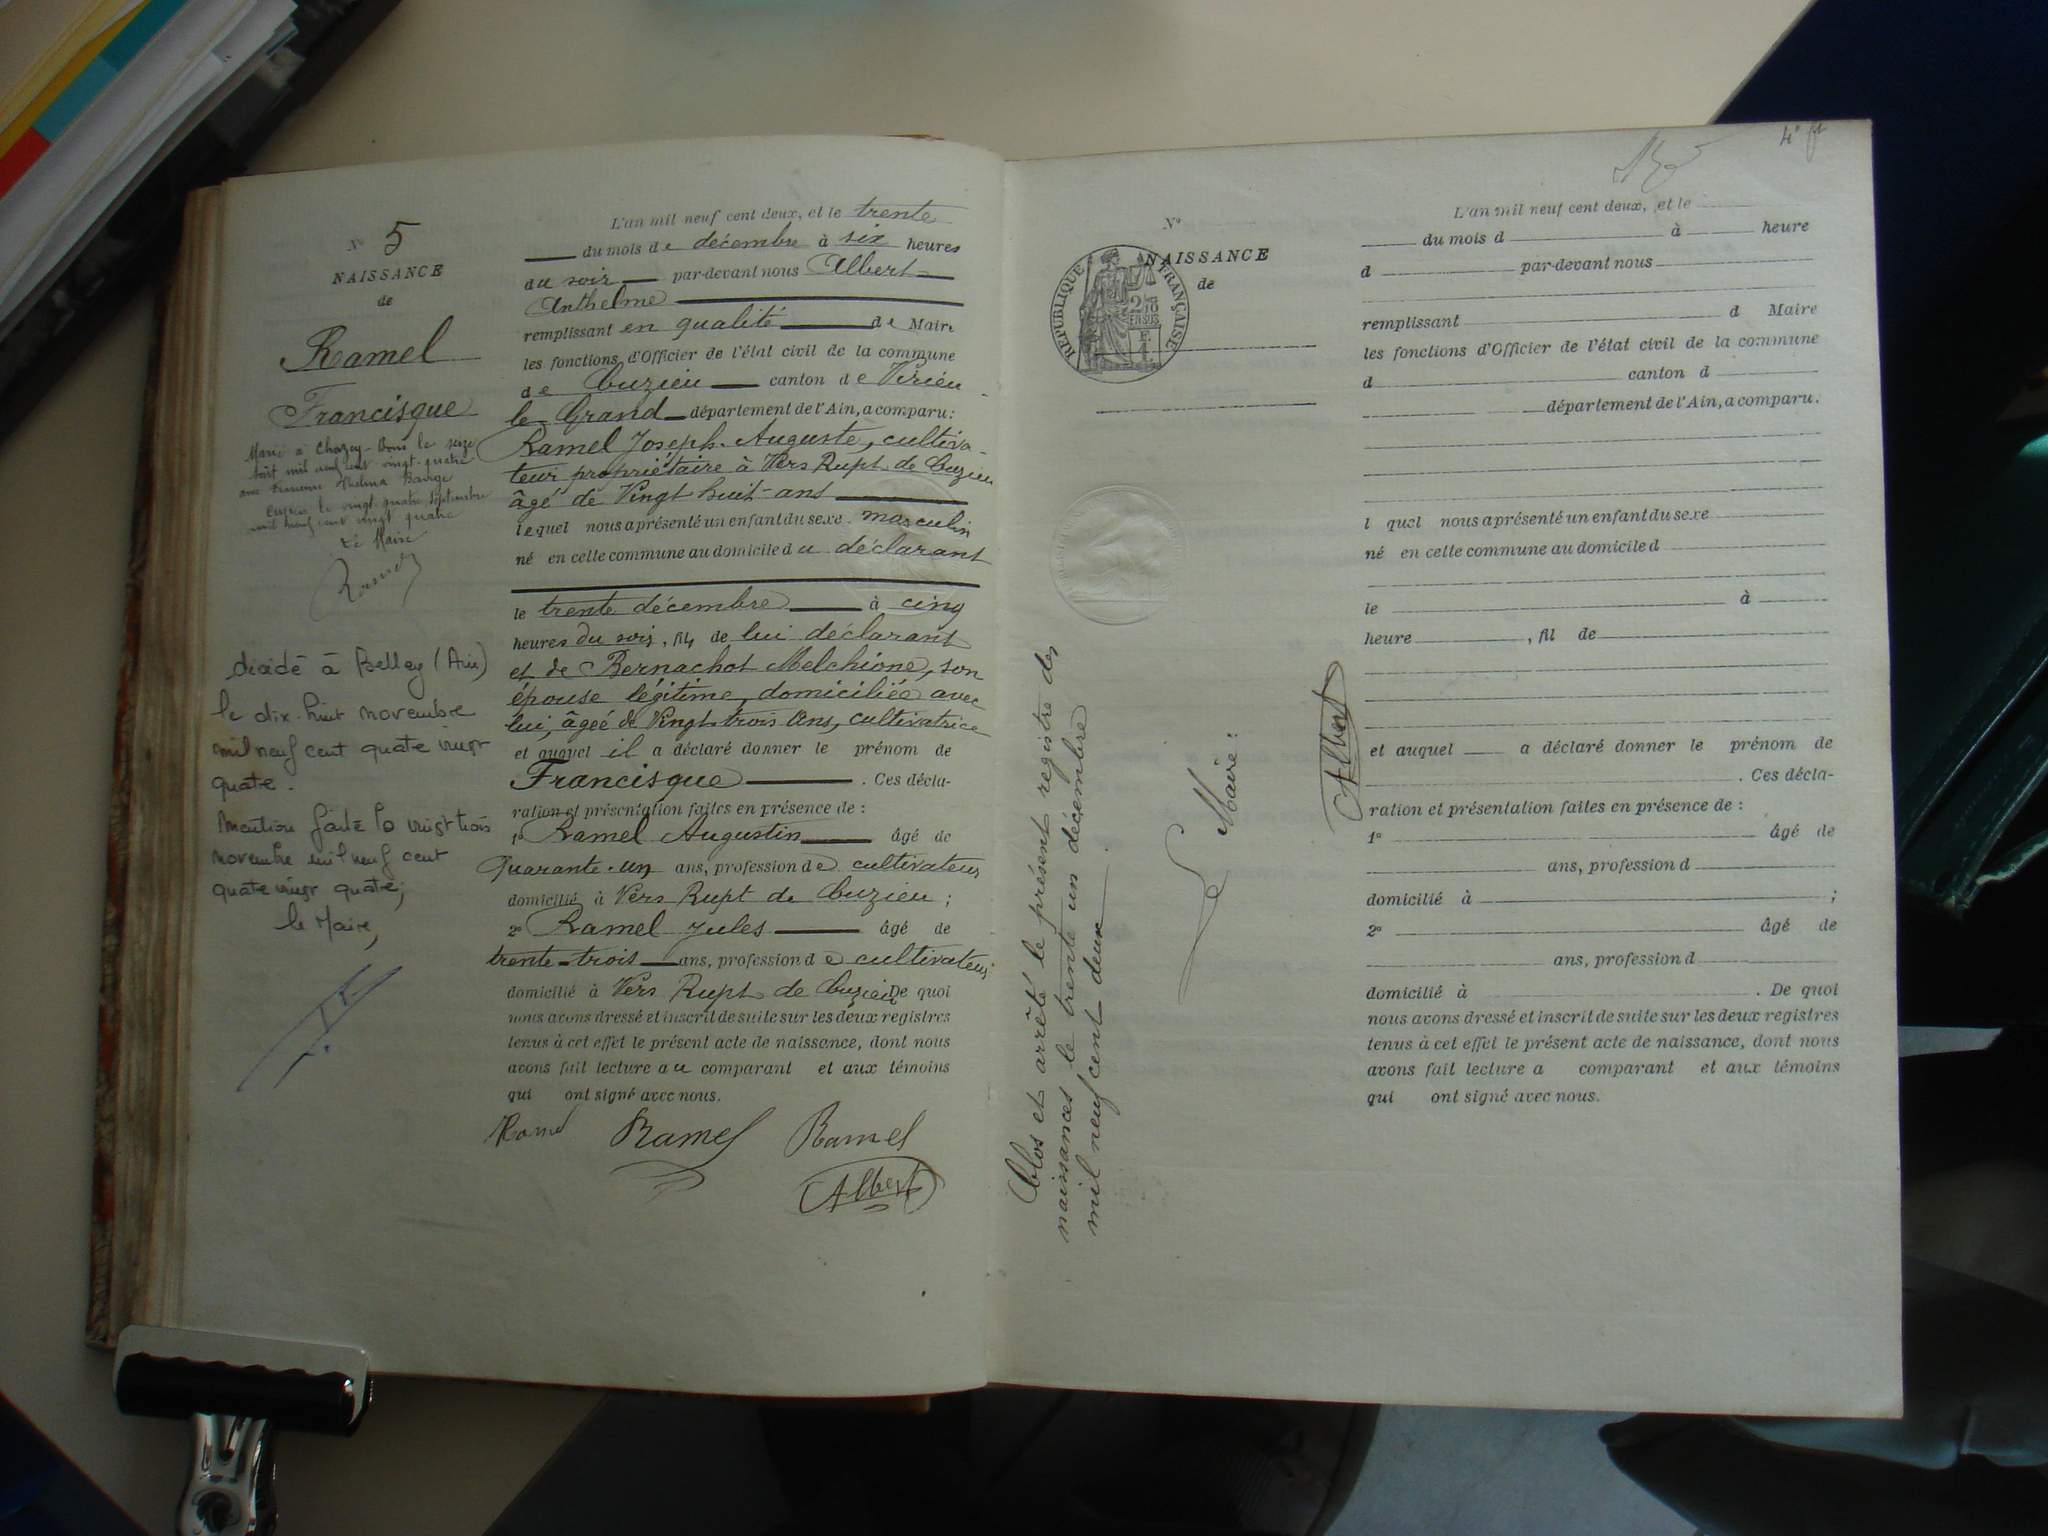 N° 5
NAISSANCE
de
Ramel
Francisque
Marié à Chazey-Bons le seize
août mil neuf cent vingt-quatre
avec
Cuzieu le vingt quatre septembre
mil neuf cent vingt quatre
Le Maire
Ramel
décédé à Belley (Ain)
le dix-huit novembre
mil neuf cent quatre vingt
quatre.
Mention faite le vingt trois
novembre mil neuf cent
quatre vingt quatre,
le Maire,
L'an mil neuf cent deux, et le trente
du mois de décembre à six heures
du soir par-devant nous Albert
Anthelme
remplissant en qualité de Maire
les fonctions d'Officier de l'état civil de la commune
de Cuzieu canton de Virieu-
le-Grand département de l'Ain, a comparu:
Ramel Joseph-Auguste, cultiva-
teur propriétaire à Vers Rupt de Cuzieu
âgé de Vingt huit-ans
lequel nous a présenté un enfant du sexe masculin
né en cette commune au domicile du déclarant
le trente décembre à cinq
heures du soir, fils de lui déclarant
et de Bernachot Melchione, son
épouse légitime, domiciliée avec
lui, âgée de Vingt-trois Ans, cultivatrice
et auquel il a déclaré donner le prénom de
Francisque. Ces décla-
ration et présentation faites en présence de :
1° Ramel Augustin âgé de
Quarante-un ans, profession de cultivateur
domicilié à Vers Rupt de Cuzieu ;
2° Ramel Jules âgé de
trente-trois ans, profession de cultivateur
domicilié à Vers Rupt de Cuzieu De quoi
nous avons dressé et inscrit de suite sur les deux registres
tenus à cet effet le présent acte de naissance, dont nous
avons fait lecture au comparant et aux témoins
qui ont signé avec nous.
Ramel Ramel Ramel
Albert
Clos et arrêté le présent registre des
naissances le trente un décembre
mil neuf cent deux
Le Maire :
Albert
4°
N°
NAISSANCE
de
RÉPUBLIQUE FRANÇAISE
L'an mil neuf cent deux, et le
du mois d à heure
d par-devant nous
remplissant d Maire
les fonctions d'Officier de l'état civil de la commune
d canton d
département de l'Ain, a comparu.
l quel nous a présenté un enfant du sexe
né en cette commune au domicile d
le à
heure , fil de
et auquel a déclaré donner le prénom de
. Ces décla-
ration et présentation faites en présence de :
1° âgé de
ans, profession d
domicilié à ;
2° âgé de
ans, profession d
domicilié à . De quoi
nous avons dressé et inscrit de suite sur les deux registres
tenus à cet effet le présent acte de naissance, dont nous
avons fait lecture a comparant et aux témoins
qui ont signé avec nous.